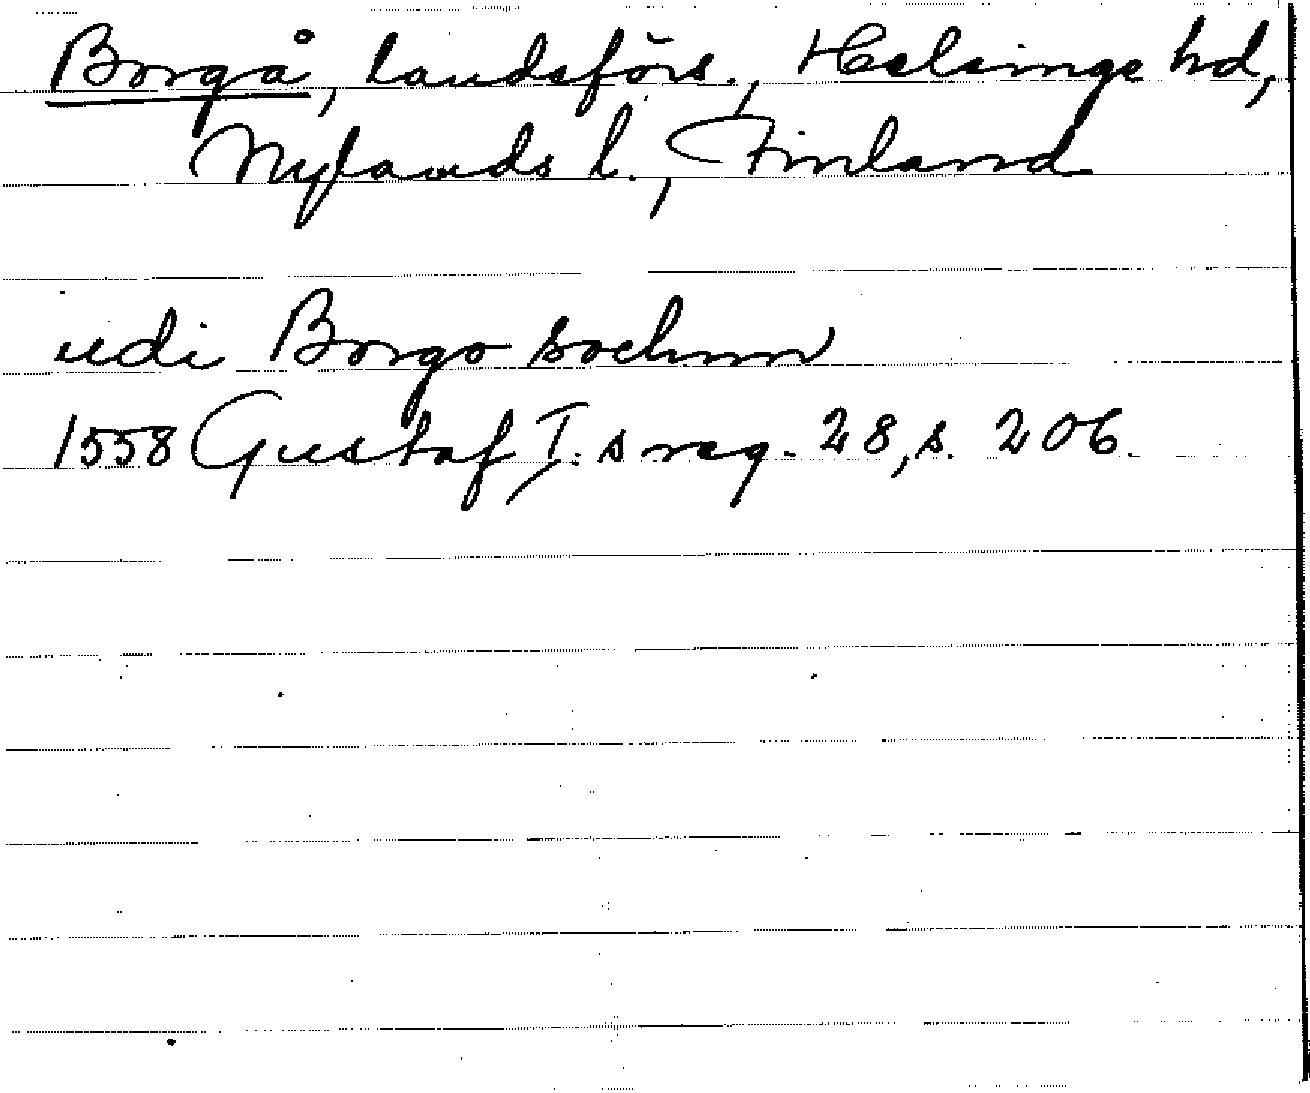 Borgå, landsförs., Helsinge hd,
Nylands l., Finland
udi Borgo sochnn
1558 Gustaf I.s reg. 28, s. 206.